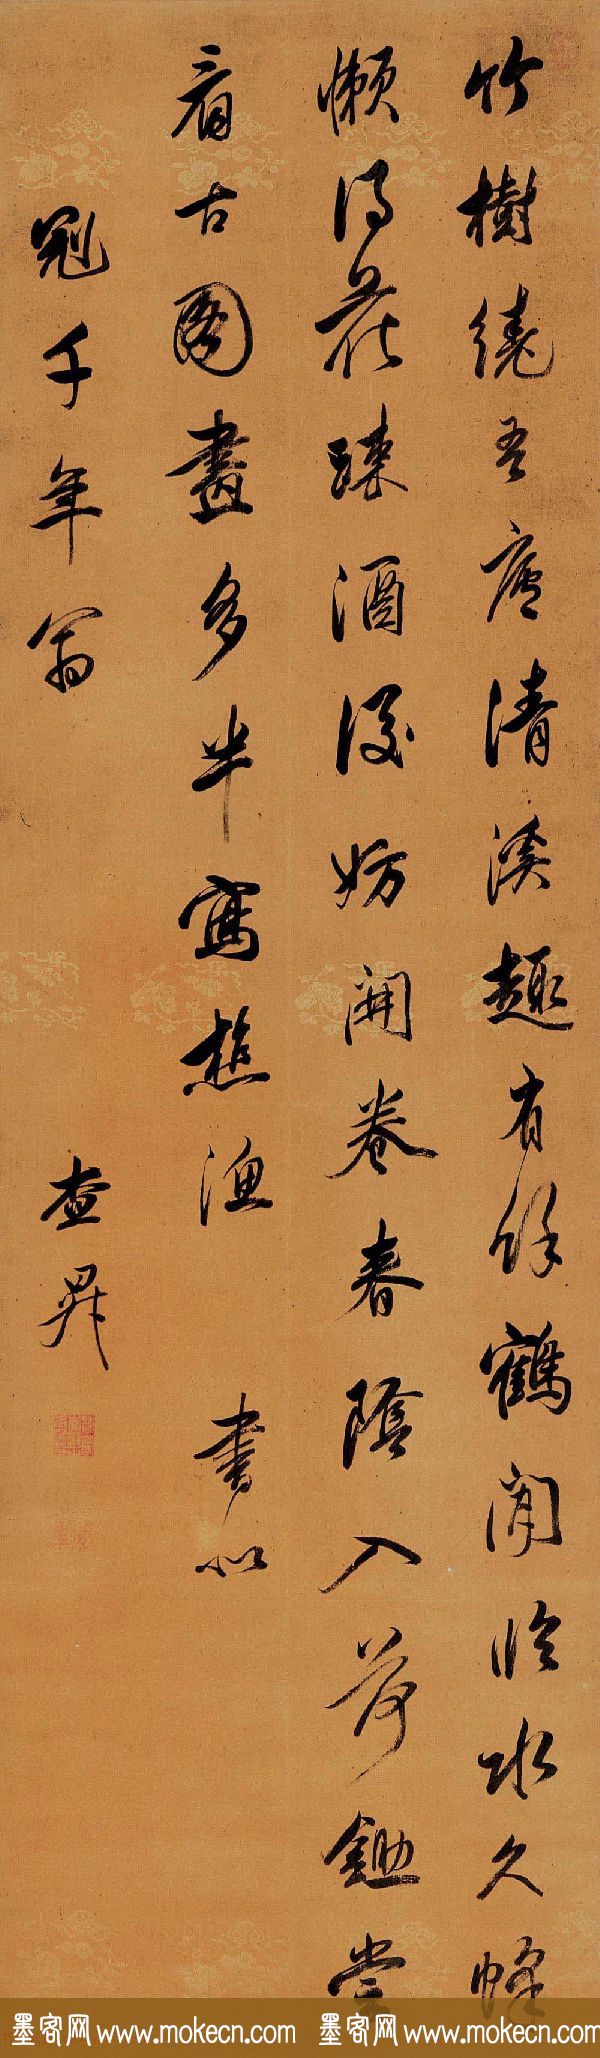 竹樹繞吾廬清溪趣有餘鶴閒臨水久蜂
懶得花踈酒後妨開卷春陰入荷鋤嘗
看古圖畫多半寫樵漁 書似
冠千年翁 查昇
墨客网 www.mokecn.com 墨客网 www.mokecn.com